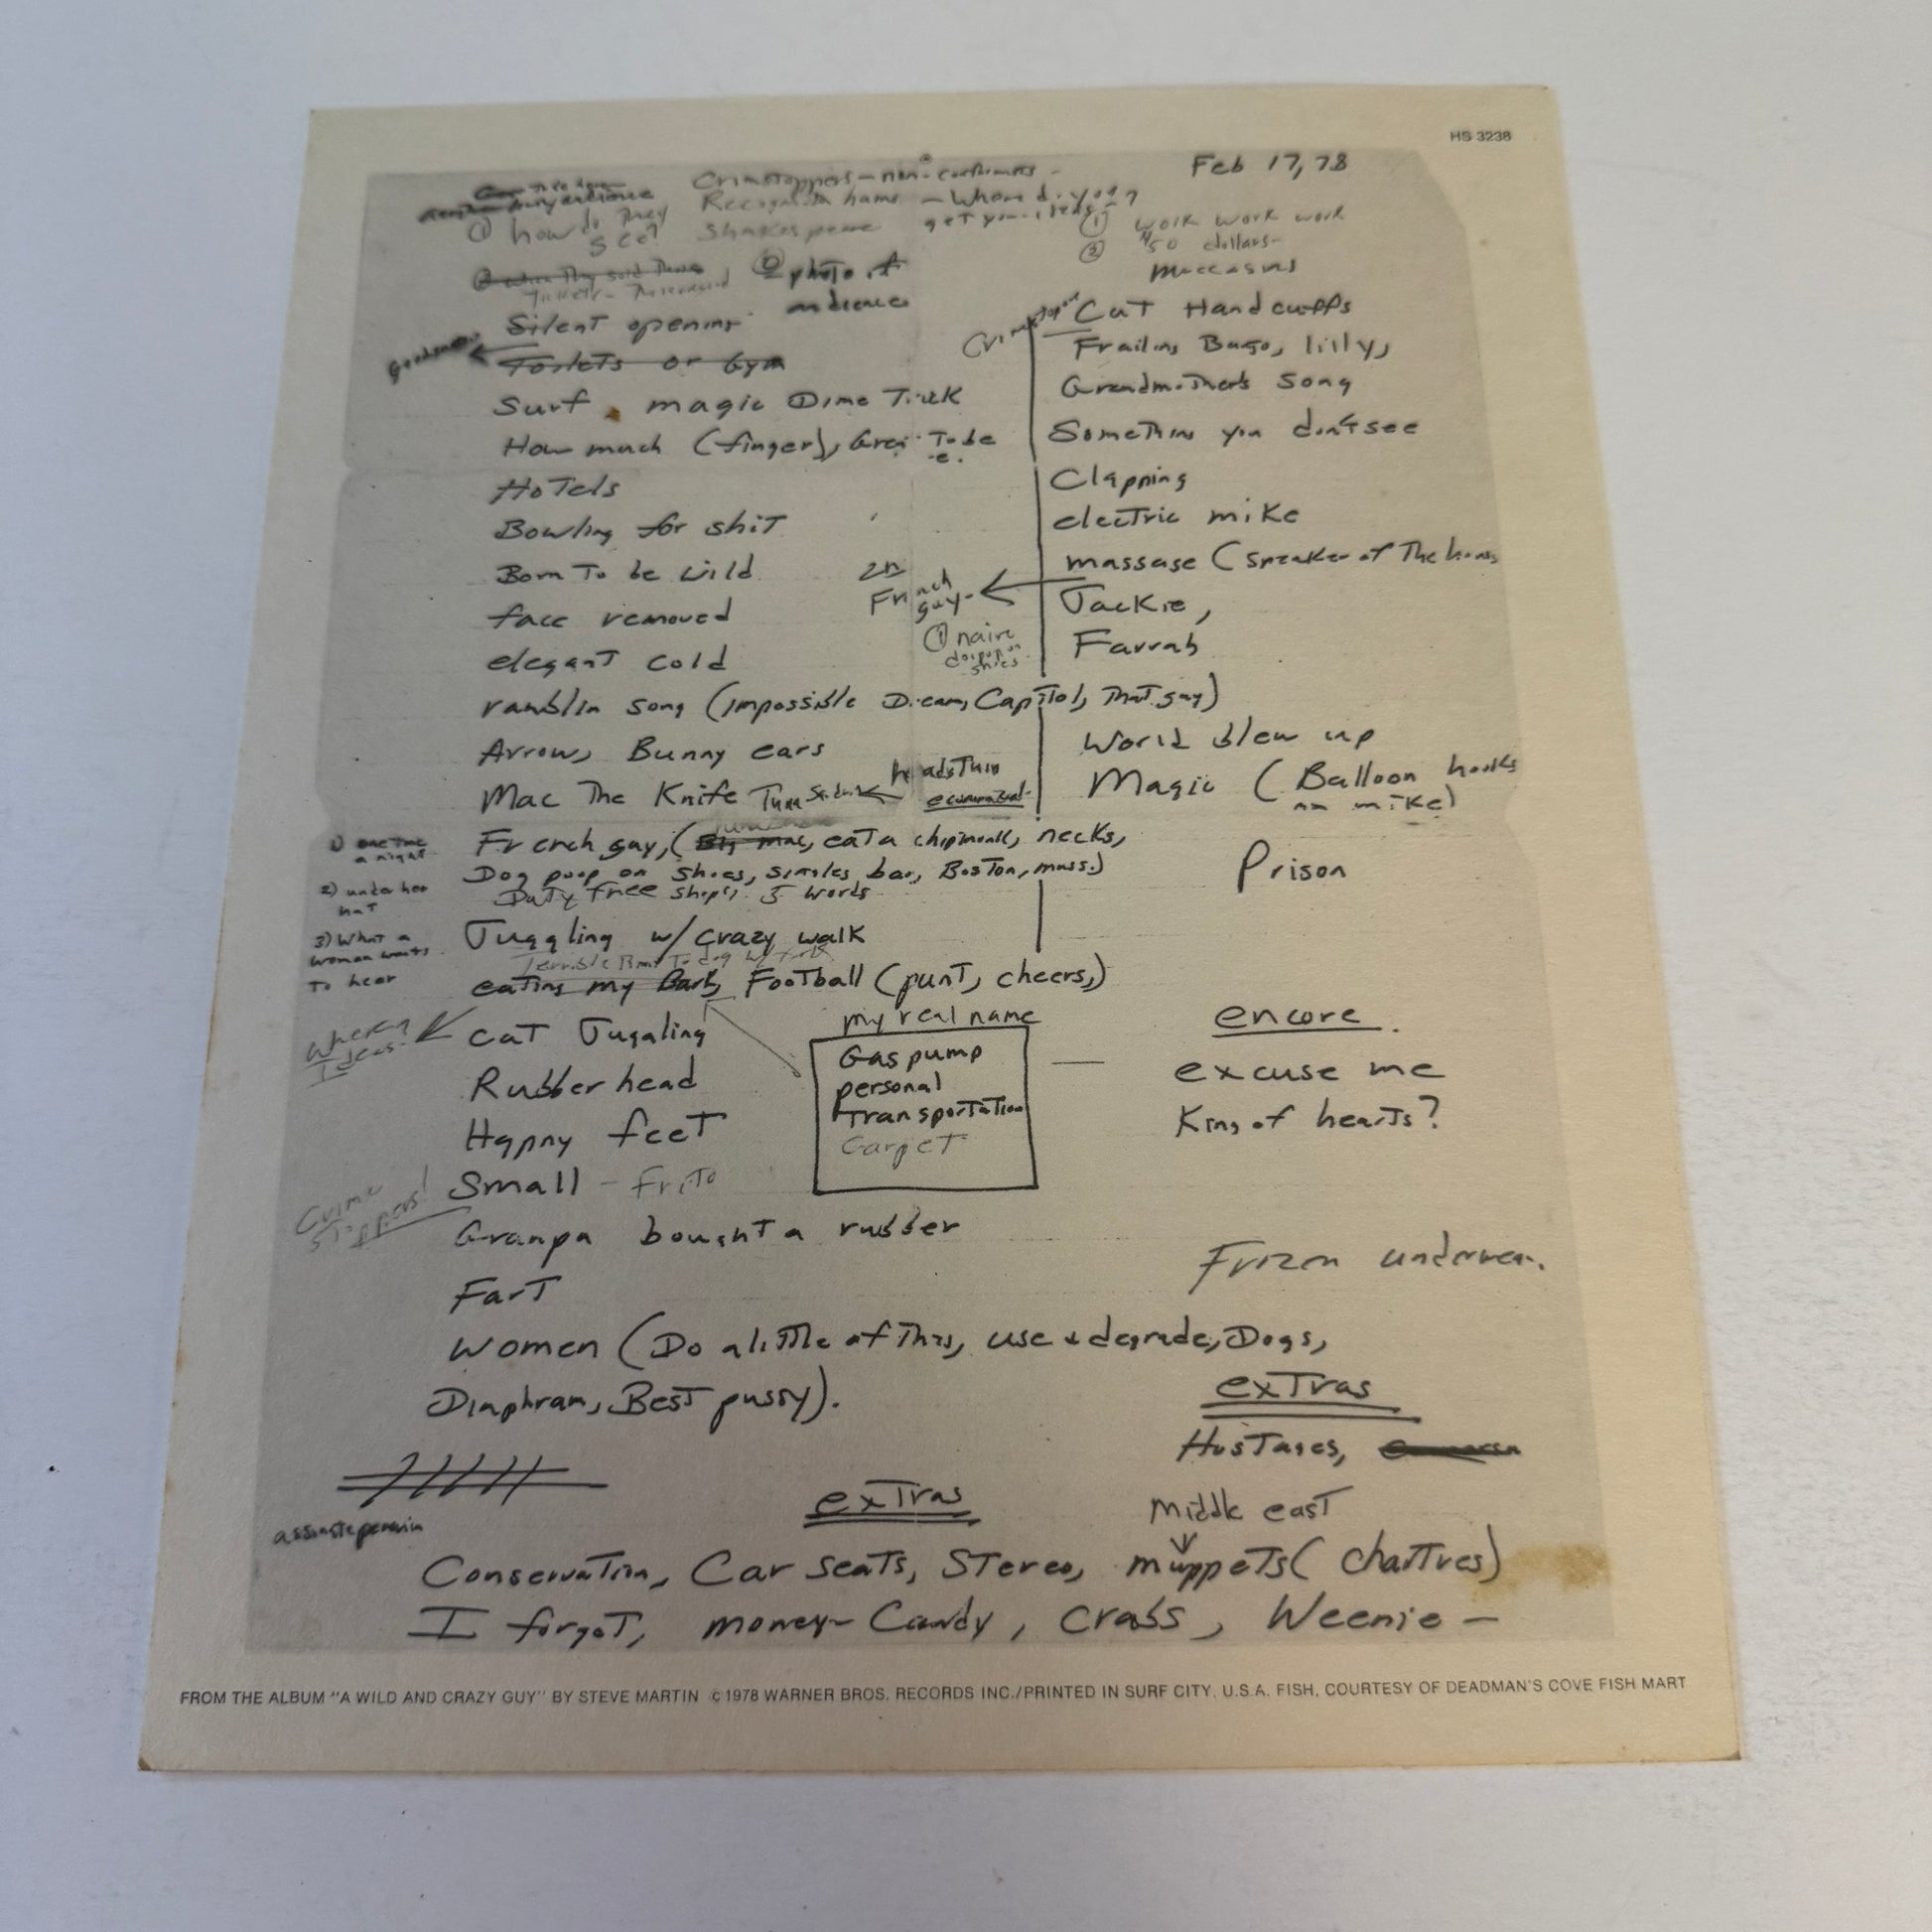 HS 3238
Feb 17, 78
Crimestoppers - non-conformist -
Shakespeare
① how do they
① work work work
② $50 dollars -
moccasins
photo of
audience
Silent opening
Toilets or Gym
Surf. magic Dime Trick
How much (finger),
Hotels
Bowling for shit
Born To be wild
face removed
elegant cold
ramblin song (impossible Dream, Capitol, That guy)
Arrow, Bunny ears
Mac The Knife
French guy, (Big mac, eat a chipmonk, necks,
Dog poop on shoes, singles bar, Boston, mass.)
Duty free shops, 5 words
1) one time
a night
2) under her
hat
3) What a
woman wants
To hear
Juggling w/ crazy walk
eating my Barb, Football (punt, cheers,)
Cat Jugaling
Rubber head
Happy feet
Small - Frito
Granpa bought a rubber
Fart
Women (Do a little of This, use + degrade, Dogs,
Diaphram, Best pussy).
Crime
stoppers!
my real name
Gas pump
personal
Transportation
Carpet
Cat Handcuffs
Grandmother's song
Something you don't see
Clapping
electric mike
massage (speaker of The house
Jackie,
Farrah
French
guy -
World blew up
Magic (Balloon hooks
on mike)
Prison
encore.
excuse me
King of hearts?
Frozen underwear.
extras
Hostages,
Middle east
extras
Conservation, Car seats, Stereo, muppets (chartres)
I forgot, money - Candy, Crabs, Weenie -
FROM THE ALBUM "A WILD AND CRAZY GUY" BY STEVE MARTIN ©1978 WARNER BROS. RECORDS INC./PRINTED IN SURF CITY, U.S.A. FISH, COURTESY OF DEADMAN'S COVE FISH MART